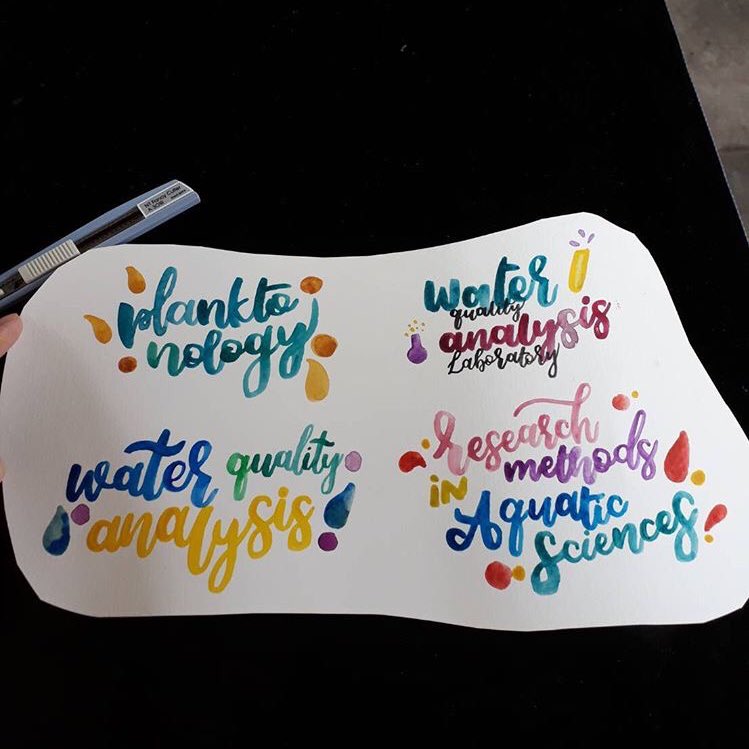 plankto
nology
water
quality
analysis
Laboratory
water quality
analysis
Research
methods
in
Aquatic
Sciences